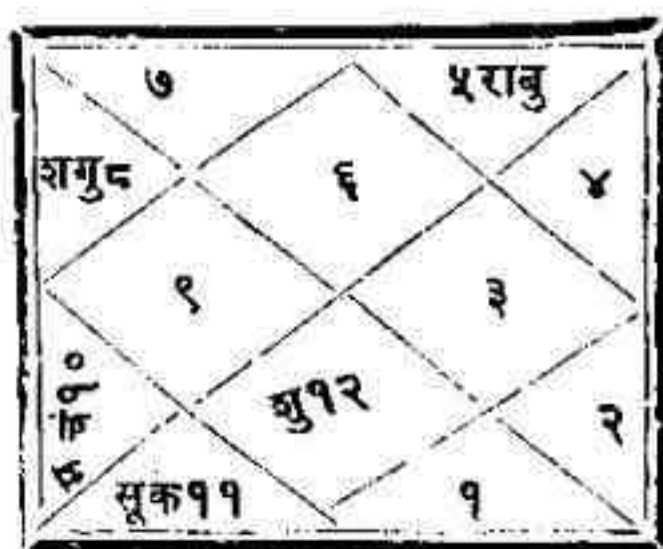 ७ ५राबु
शगु८ ६ ४
९ ३
म चं१० शु१२ २
सूक११ १